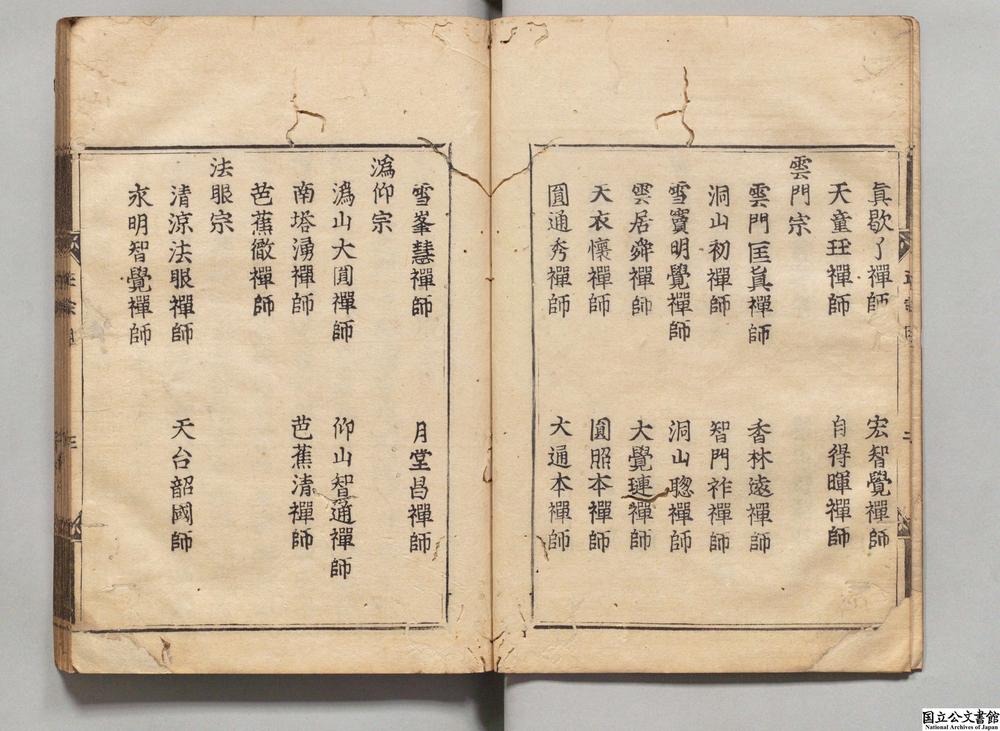 真歇了禪師 宏智覺禪師
天童玨禪師 自得暉禪師
雲門宗
雲門匡眞禪師 香林遠禪師
洞山初禪師 智門祚禪師
雪竇明覺禪師 洞山聦禪師
雲居舜禪師 大覺璉禪師
天衣懷禪師 圓照本禪師
圓通秀禪師 大通本禪師
雪峯慧禪師 月堂昌禪師
潙仰宗
潙山大圓禪師 仰山智通禪師
南塔湧禪師 芭蕉清禪師
芭蕉徹禪師
法眼宗
清凉法眼禪師 天台韶國師
永明智覺禪師
国立公文書館
National Archives of Japan